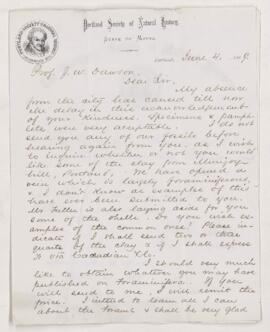 Portland Society of Natural History,
STATE OF MAINE
June 4,
Prof. J. W. Dawson,
Dear Sir,
My absence
from the city has caused till now
the delay in this acknowledgement
of your kindness. Specimens & pamph-
lets were very acceptable. I do not
send you any of our fossils before
hearing again from you, as I wish
to inquire whether or not you would
like some of the clay from Munjoy
hill, Portland. We have opened a
which is largely foraminiferal,
& I don't know as examples of this
have ever been submitted to you.
Mr. Fuller is also laying aside for you
some of the shells. Do you wish ex-
amples of the common ones? Please in-
dicate if I shall send two or three
quarts of the clay & if I shall express
it via Canadian Ex.
I should very much
like to obtain whatever you may have
published on foraminifera. If you
will send to me, I will remit the
price. I intend to learn all I can
about the forams & shall be very glad